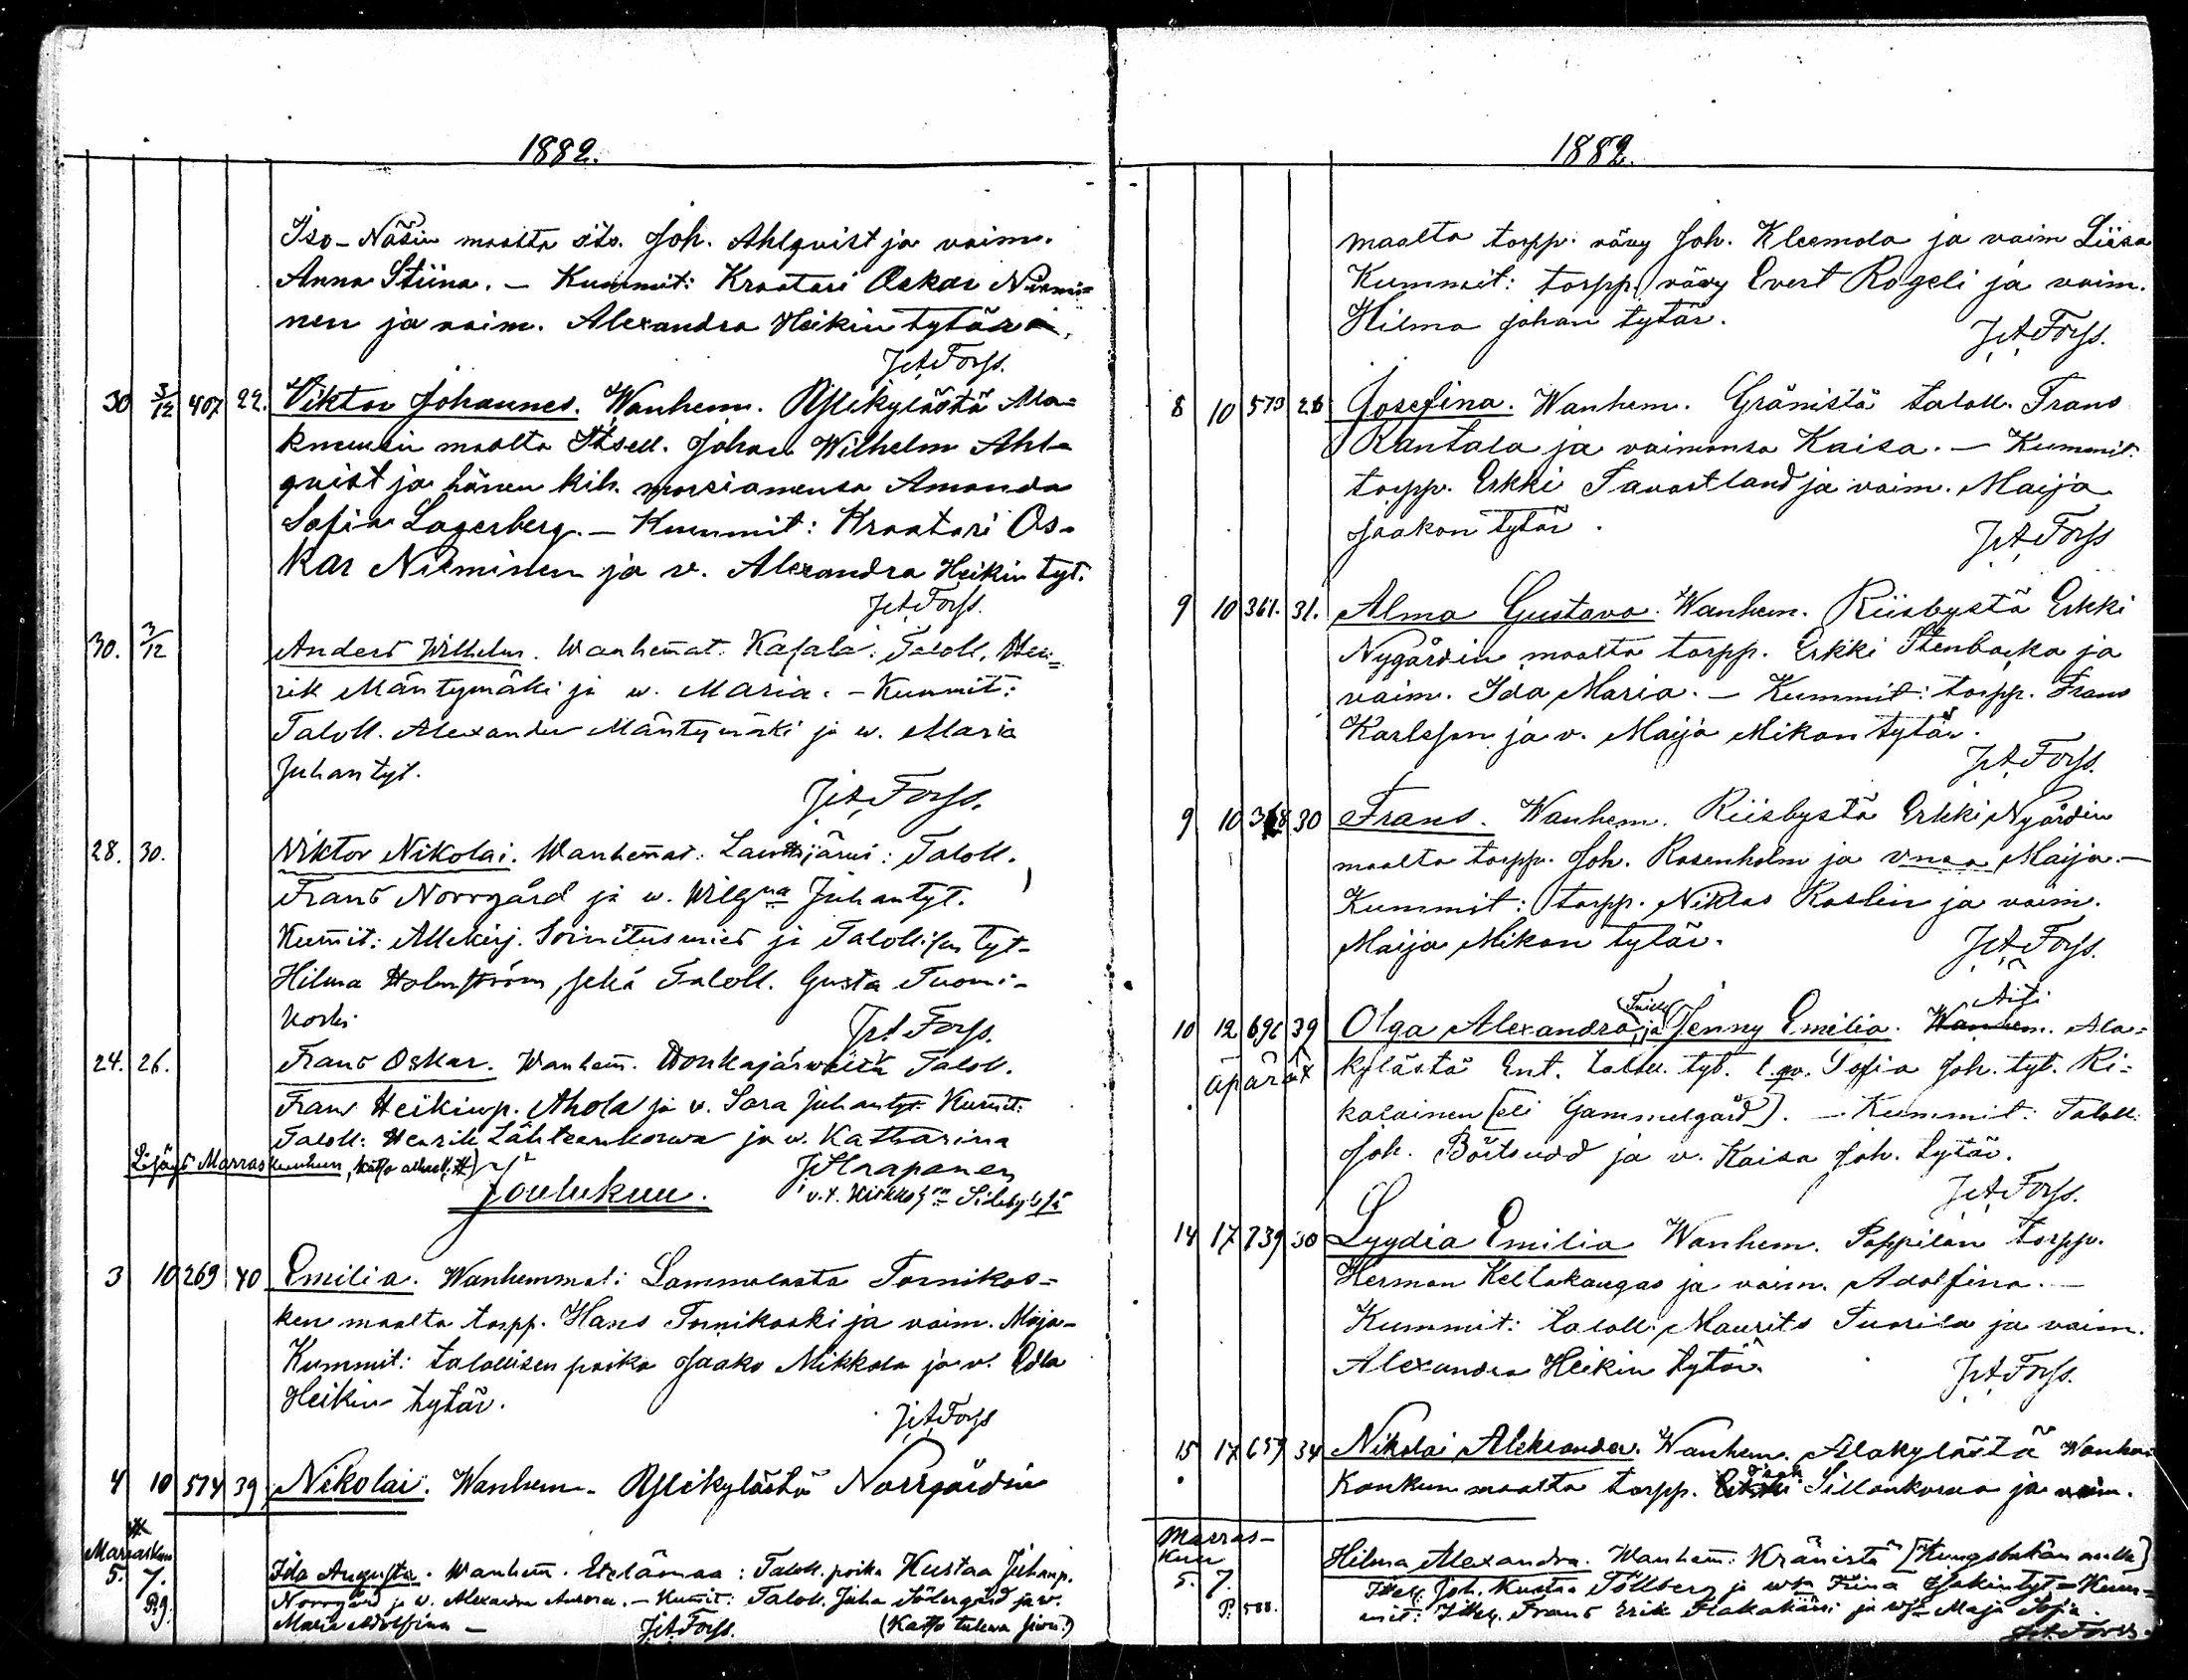 1882.
Iso-Näsin maalta its. Joh. Ahlqvist ja vaim.
Anna Stiina. — Kummit: Kraatari Oskar Niemi=
nen ja vaim. Alexandra Heikin tytär
JAForss.
30 3/12 407 22. Viktor Johannes. Wanhem. Yllikylästä Ala=
maalta Itsell. Johan Wilhelm Ahl=
qvist ja hänen kih. morsiamensa Amanda
Sofia Lagerberg. — Kummit: Kraatari Os=
kar Nieminen ja v. Alexandra Heikin tyt.
JAForss.
30. 3/12 Anders Wilhelm. Wanhemat: Kafala: Taloll. Hen=
rik Mäntymäki ja w. Maria. — Kummit:
Taloll. Alexander Mäntymäki ja w. Maria
Juhantyt.
JAForss.
28. 30. Viktor Nikolai. Wanhemat: Lauttijärwi: Taloll.
Frans Norrgård ja w. Juhantyt.
Kumit: Allekirj. ja Talollisen tyt.
Hilma Holmström, sekä Taloll. Gusta Tuomi-
koski
JAForss.
24. 26. Frans Oskar. Wanhem. Taloll.
Frans Heikinp. Ahola ja v. Sara Juhantyt. Kumit:
Taloll. Henrik Lähteenkorwa ja w. Katharina
Lisäys Marraskuuhun, katso alhall. #)
JHaapanen
Joulukuu.
v.t. Siikbyssä
3 10 269 40 Emilia. Wanhemmat: Lammalasta Tornikos=
ken maalta torpp. Hans Tornikoski ja vaim. Maja—
Kummit: talollisen poika Jaako Mikkola ja v. Edla
Heikin tytär.
JAForss
4 10 574 39 Nikolai. Wanhem. Yllikylästä Norrgårdin
#
Marraskuu
5. 7. Ida Augusta. Wanhem. Etelämaa: Taloll. poika Kustaa Juhanp.
Norrgård ja w. Alexandra Aurora. — Kumit: Taloll. Juha Södergård ja w.
P.9. Maria Adolfina —
JAForss.
(Katso tulewa siwu!)
1882.
maalta torpp. vävy Joh. Kleemola ja vaim Liisa
Kummit: torpp. vävy Evert Rogeli ja vaim.
Hilma Johan tytär.
JAForss.
8 10 573 28 Josefina. Wanhem. Gränistä taloll. Frans
Rantala ja vaimonsa Kaisa. — Kummit.
torpp. Erkki Tavastland ja vaim. Maija
Jaakon tytär.
JAForss
9 10 361. 31. Alma Gustava. Wanhem. Riisbystä Erkki
Nygårdin maalta torpp. Erkki Stenbacka ja
vaim. Ida Maria. — Kummit: torpp. Frans
Karlsson ja v. Maija Mikon tytär.
JAForss.
9 10 368 30 Frans. Wanhem. Riisbystä Erkki Nygårdin
maalta torpp. Joh. Rosenholm ja vnsa Maija. —
Kummit: torpp. Niklas Roslin ja vaim.
Maija Mikon tytär.
JAForss.
10 12 696 39 Olga Alexandra, ja Jenny Emilia. Äiti Ala=
äpärät kylästä Ent. tyt. Sofia Joh. tyt. Ri=
kalainen [eli Gammelgård]. — Kummit: Taloll.
Joh. Böitsudd ja v. Kaisa Joh. tytär.
JAForss.
14 17 739 30 Lyydia Emilia Wanhem. Pappilan torpp.
Herman Keltakangas ja vaim. Adolfina. —
Kummit: taloll. Maurits Tuorila ja vaim.
Alexandra Heikin tytär.
JAForss.
15 17 659 34 Nikolai Aleksander. Wanhem. Alakylästä Wanhan
Konkun maalta torpp. Sillankorva ja vaim.
Marras-
kuu
5. 7. Hilma Alexandra. Wanhem: Kränistä [Kungsbakan maalla]
Itsell. Joh. Kustaa Töllberg ja Kum=
P. 588. mit: Itsell. Frans Erik ja Maja
JAForss.